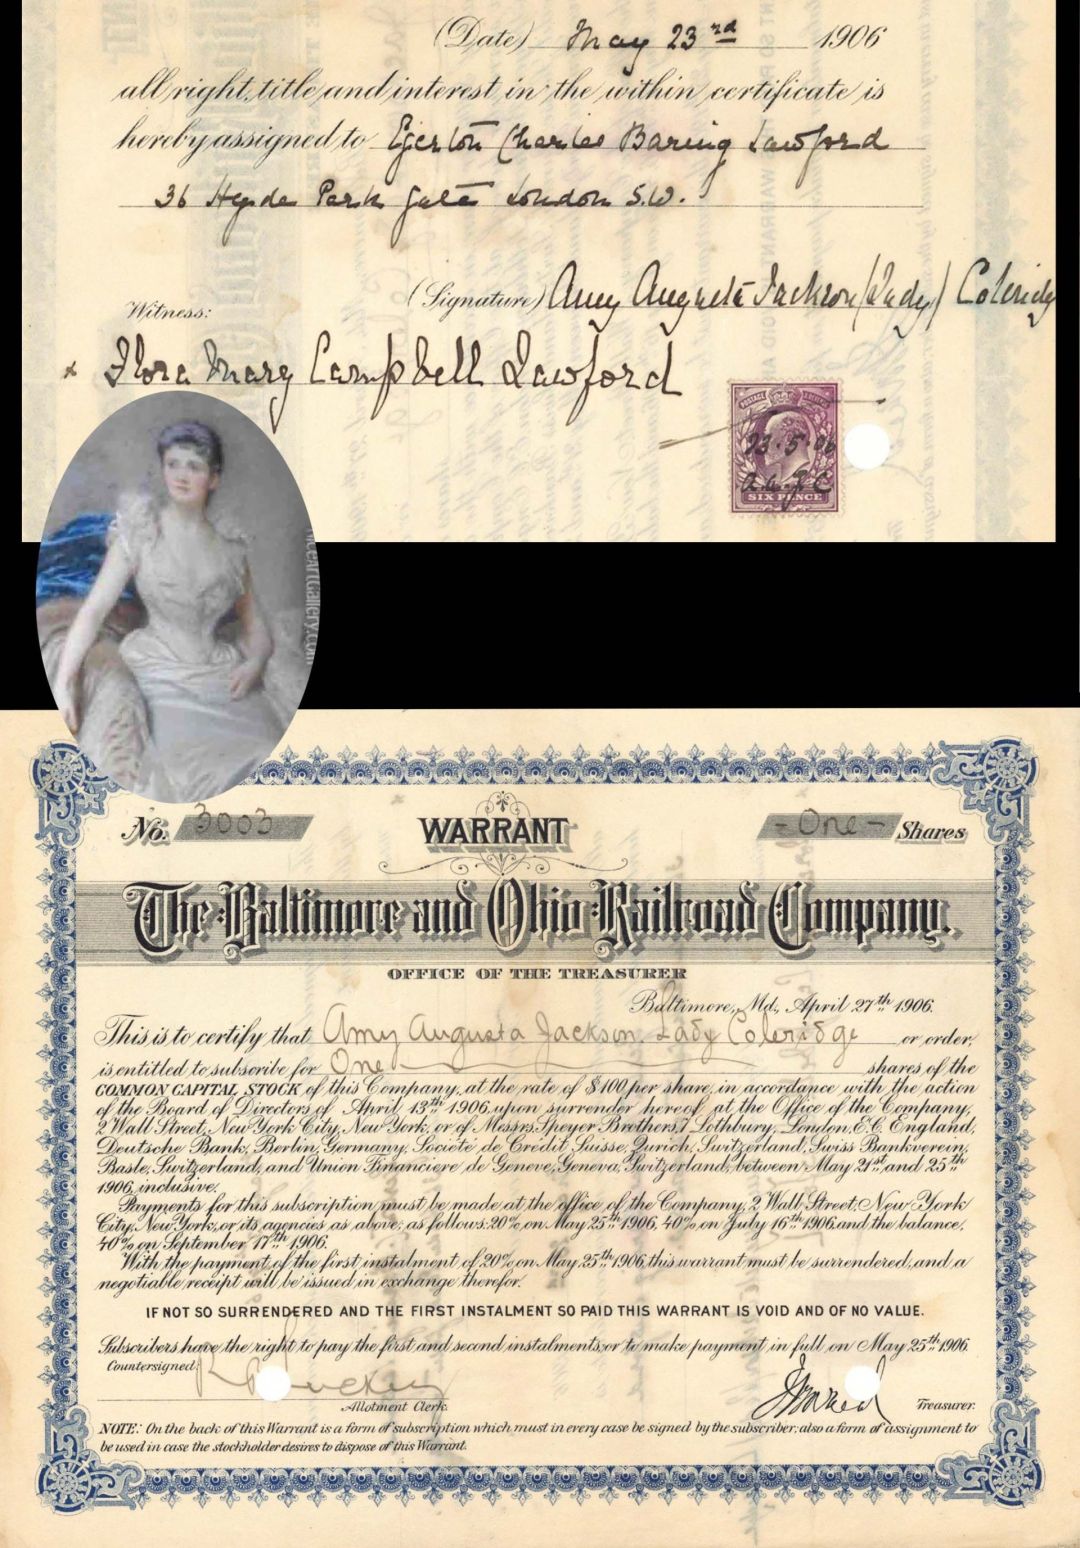 (Date) May 23rd 1906
all right, title and interest in the within certificate is
hereby assigned to Egerton Charles Baring Lawford
36 Hyde Park Gate London S.W.
Witness:
(Signature) Amy Augusta Jackson (Lady) Coleridge
x Flora Mary Campbell Lawford
POSTAGE
23.5.06
A.A.J.C
SIX PENCE
No. 3003
WARRANT
- One - Shares
The Baltimore and Ohio Railroad Company.
OFFICE OF THE TREASURER
Baltimore, Md., April 27th 1906.
This is to certify that Amy Augusta Jackson, Lady Coleridge or order,
is entitled to subscribe for One shares of the
COMMON CAPITAL STOCK of this Company, at the rate of $100 per share, in accordance with the action
of the Board of Directors of April 13th 1906, upon surrender hereof, at the Office of the Company,
2 Wall Street, New York City, New York, or of Messrs Speyer Brothers, 7 Lothbury, London, E.C. England,
Deutsche Bank, Berlin, Germany, Société de Crédit Suisse, Zurich, Switzerland, Swiss Bankverein,
Basle, Switzerland, and Union Financiere de Geneve, Geneva, Switzerland, between May 21st and 25th
1906, inclusive.
Payments for this subscription must be made at the office of the Company, 2 Wall Street, New York
City, New York, or its agencies as above; as follows: 20% on May 25th 1906, 40% on July 16th 1906, and the balance,
40% on September 17th 1906.
With the payment of the first instalment of 20% on May 25th 1906, this warrant must be surrendered, and a
negotiable receipt will be issued in exchange therefor.
IF NOT SO SURRENDERED AND THE FIRST INSTALMENT SO PAID THIS WARRANT IS VOID AND OF NO VALUE.
Subscribers have the right to pay the first and second instalments, or to make payment in full on May 25th 1906.
Countersigned,
Allotment Clerk.
Treasurer.
NOTE: On the back of this Warrant is a form of subscription which must in every case be signed by the subscriber, also a form of assignment to
be used in case the stockholder desires to dispose of this Warrant.